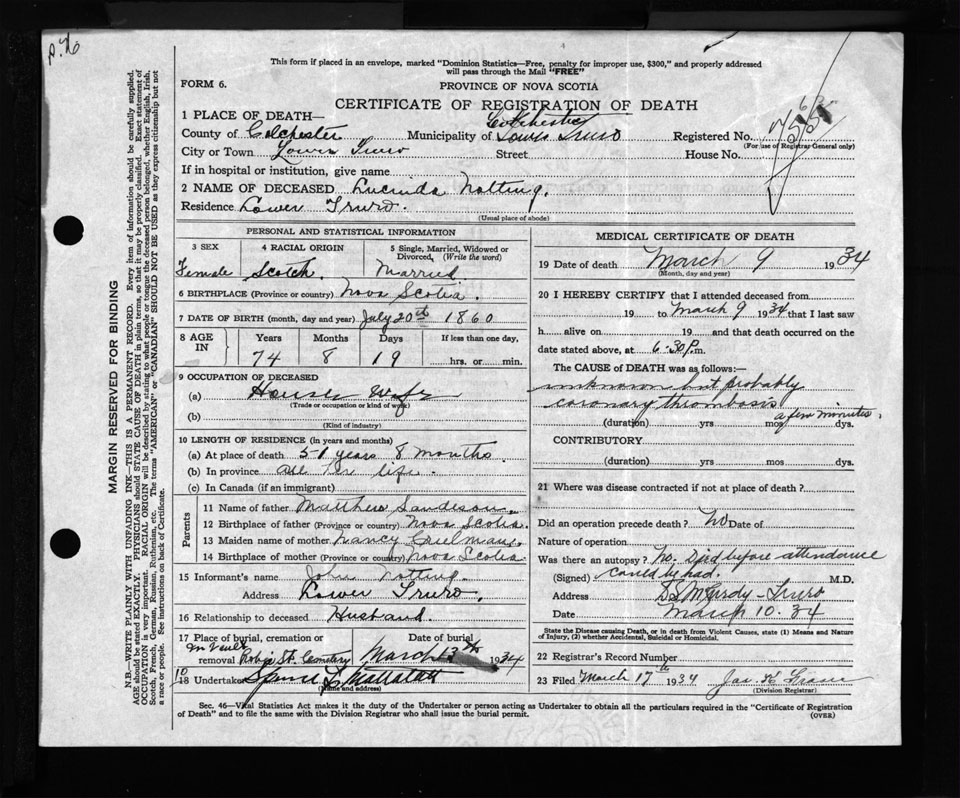 This form if placed in an envelope, marked "Dominion Statistics—Free, penalty for improper use, $300," and properly addressed
will pass through the Mail "FREE"
FORM 6.
PROVINCE OF NOVA SCOTIA
CERTIFICATE OF REGISTRATION OF DEATH
1 PLACE OF DEATH— Colchester
County of Colchester Municipality of Lower Truro Registered No.
(For use of Registrar General only)
City or Town Lower Truro Street House No.
If in hospital or institution, give name
2 NAME OF DECEASED Lucinda Notting.
Residence Lower Truro.
(Usual place of abode)
PERSONAL AND STATISTICAL INFORMATION
3 SEX 4 RACIAL ORIGIN 5 Single, Married, Widowed or Divorced, (Write the word)
Female Scotch Married
6 BIRTHPLACE (Province or country) Nova Scotia.
7 DATE OF BIRTH (month, day and year) July 20th 1860
8 AGE IN Years Months Days If less than one day,
74 8 19 hrs. or min.
9 OCCUPATION OF DECEASED
(a) House Wife
(Trade or occupation or kind of work)
(b)
(Kind of industry)
10 LENGTH OF RESIDENCE (in years and months)
(a) At place of death 51 years 8 months.
(b) In province all her life.
(c) In Canada (if an immigrant)
Parents
11 Name of father Matthew
12 Birthplace of father (Province or country) Nova Scotia.
13 Maiden name of mother Nancy
14 Birthplace of mother (Province or country) Nova Scotia
15 Informant's name John Notting.
Address Lower Truro.
16 Relationship to deceased Husband.
17 Place of burial, cremation or removal Date of burial
In Vault
Robie St. Cemetery March 13th 1934
18 Undertaker
(Name and address)
MEDICAL CERTIFICATE OF DEATH
19 Date of death March 9 1934
(Month, day and year)
20 I HEREBY CERTIFY that I attended deceased from
19 to March 9 1934 that I last saw
h alive on 19 and that death occurred on the
date stated above, at 6-30 P.m.
The CAUSE of DEATH was as follows:—
unknown but probably
coronary thrombosis
a few minutes.
(duration) yrs mos dys.
CONTRIBUTORY
(duration) yrs mos dys.
21 Where was disease contracted if not at place of death?
Did an operation precede death? No Date of
Nature of operation
Was there an autopsy? No. Died before attendance
(Signed) could be had. M.D.
Address Truro
Date March 10. 34
State the Disease causing Death, or in death from Violent Causes, state (1) Means and Nature of Injury, (2) whether Accidental, Suicidal or Homicidal.
22 Registrar's Record Number
23 Filed March 17th 1934 Jas. K.
(Division Registrar)
Sec. 46—Vital Statistics Act makes it the duty of the Undertaker or person acting as Undertaker to obtain all the particulars required in the "Certificate of Registration
of Death" and to file the same with the Division Registrar who shall issue the burial permit.
(OVER)
MARGIN RESERVED FOR BINDING
N.B.—WRITE PLAINLY WITH UNFADING INK—THIS IS A PERMANENT RECORD. Every item of information should be carefully supplied.
AGE should be stated EXACTLY. PHYSICIANS should STATE CAUSE OF DEATH in plain terms, so that it may be properly classified. Exact statement of
OCCUPATION is very important. RACIAL ORIGIN will be described by stating to what people or tongue the deceased person belonged, whether English, Irish,
Scotch, French, German, Russian, Ruthenian, etc. The terms "AMERICAN" or "CANADIAN" SHOULD NOT BE USED as they express citizenship but not
a race or people. See instructions on back of Certificate.